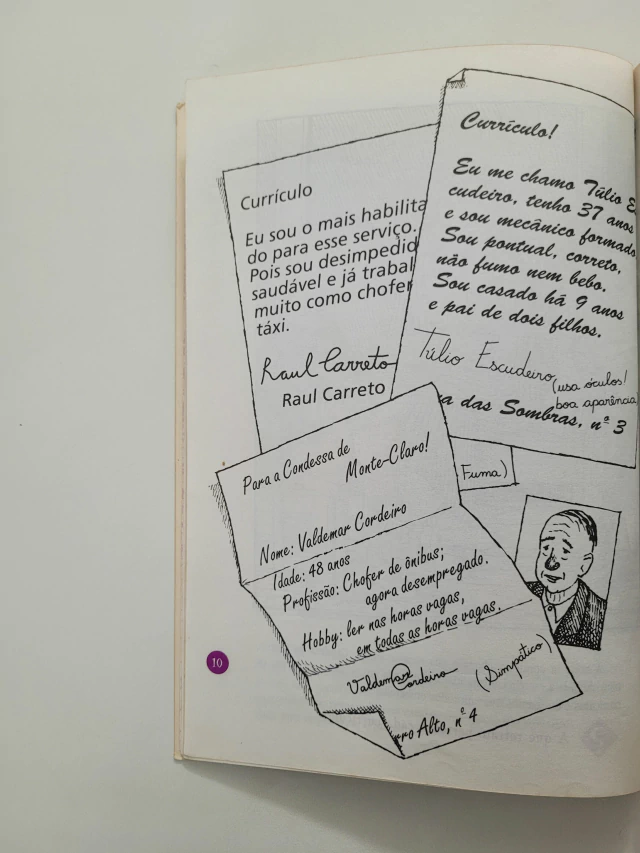 Currículo
Eu sou o mais habilita
do para esse serviço.
Pois sou desimpedid
saudável e já trabal
muito como chofer
táxi.
Raul Carreto
Raul Carreto
Currículo!
Eu me chamo Túlio E
cudeiro, tenho 37 anos
e sou mecânico formado
Sou pontual, correto,
não fumo nem bebo.
Sou casado há 9 anos
e pai de dois filhos.
Túlio Escudeiro
(usa óculos!
boa aparência
a das Sombras, nº 3
Fuma)
Para a Condessa de
Monte-Claro!
Nome: Valdemar Cordeiro
Idade: 48 anos
Profissão: Chofer de ônibus;
agora desempregado.
Hobby: ler nas horas vagas,
em todas as horas vagas.
Valdemar Cordeiro
(Simpático)
rro Alto, nº 4
10